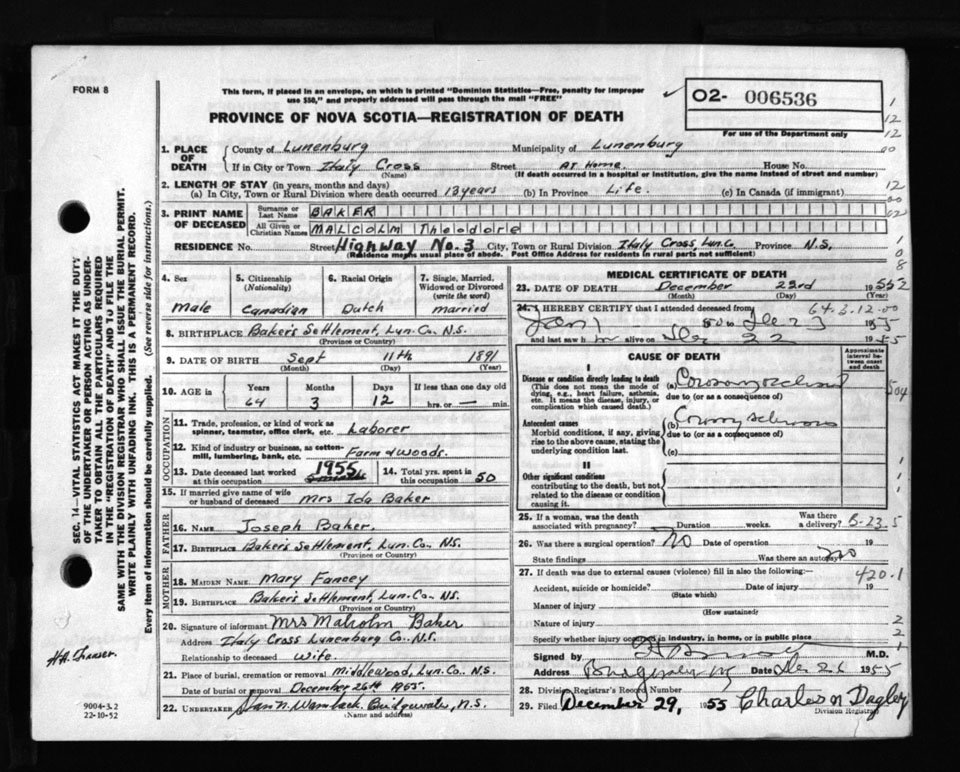 FORM 8
This form, if placed in an envelope, on which is printed "Dominion Statistics—Free, penalty for improper
use $50," and properly addressed will pass through the mail "FREE"
PROVINCE OF NOVA SCOTIA—REGISTRATION OF DEATH
O2- 006536
For use of the Department only
1. PLACE OF DEATH
County of Lunenburg Municipality of Lunenburg
If in City or Town Italy Cross Street At Home House No.
(Name) (If death occurred in a hospital or institution, give the name instead of street and number)
2. LENGTH OF STAY (in years, months and days)
(a) In City, Town or Rural Division where death occurred 13 years (b) In Province Life. (c) In Canada (if immigrant)
3. PRINT NAME OF DECEASED
Surname or Last Name BAKER
All Given or Christian Names MALCOLM Theodore
RESIDENCE No. Street Highway No. 3 City, Town or Rural Division Italy Cross, Lun. Co. Province N.S.
(Residence means usual place of abode. Post Office Address for residents in rural parts not sufficient)
4. Sex
Male
5. Citizenship (Nationality)
Canadian
6. Racial Origin
Dutch
7. Single, Married, Widowed or Divorced (write the word)
married
8. BIRTHPLACE Baker's Settlement, Lun. Co. N.S.
(Province or Country)
9. DATE OF BIRTH Sept 11th 1891
(Month) (Day) (Year)
10. AGE in Years Months Days If less than one day old
64 3 12 hrs. or — min.
OCCUPATION
11. Trade, profession, or kind of work as spinner, teamster, office clerk, etc. Laborer
12. Kind of industry or business, as cotten-mill, lumbering, bank, etc. Farm & woods.
13. Date deceased last worked at this occupation 1955
14. Total yrs. spent in this occupation 50
15. If married give name of wife or husband of deceased Mrs Ida Baker
FATHER
16. NAME Joseph Baker.
17. BIRTHPLACE Baker's Settlement, Lun. Co. N.S.
(Province or Country)
MOTHER
18. MAIDEN NAME Mary Fancey
19. BIRTHPLACE Baker's Settlement, Lun. Co. N.S.
(Province or Country)
20. Signature of informant Mrs Malcolm Baker
Address Italy Cross Lunenburg Co. N.S.
Relationship to deceased Wife.
21. Place of burial, cremation or removal Middlewood, Lun. Co. N.S.
Date of burial or removal December 26th 1955.
22. UNDERTAKER Bridgewater, N.S.
(Name and address)
MEDICAL CERTIFICATE OF DEATH
23. DATE OF DEATH December 23rd 1955
(Month) (Day) (Year)
24. I HEREBY CERTIFY that I attended deceased from
64-3-12-00
Jan 1 Dec 23 1955
and last saw h im alive on Dec 22 1955
CAUSE OF DEATH
Approximate interval between onset and death
I
Disease or condition directly leading to death
(This does not mean the mode of dying, e.g., heart failure, asthenia, etc. It means the disease, injury, or complication which caused death.)
(a)
due to (or as a consequence of)
Antecedent causes
Morbid conditions, if any, giving rise to the above cause, stating the underlying condition last.
(b) Coronary sclerosis
due to (or as a consequence of)
(c)
II
Other significant conditions
contributing to the death, but not related to the disease or condition causing it.
25. If a woman, was the death associated with pregnancy? Duration weeks. Was there a delivery?
26. Was there a surgical operation? NO Date of operation 19
State findings Was there an autopsy? no
27. If death was due to external causes (violence) fill in also the following:—
420.1
Accident, suicide or homicide? Date of injury 19
(State which)
Manner of injury
(How sustained)
Nature of injury
Specify whether injury occurred in industry, in home, or in public place
Signed by M.D.
Address Bridgewater Date Dec 26 1955
28. Division Registrar's Record Number
29. Filed December 29, 1955 Charles N Dagley
Division Registrar
SEC. 14—VITAL STATISTICS ACT MAKES IT THE DUTY
OF THE UNDERTAKER OR PERSON ACTING AS UNDER-
TAKER TO OBTAIN ALL THE PARTICULARS REQUIRED
IN THE "REGISTRATION OF DEATH" AND TO FILE THE
SAME WITH THE DIVISION REGISTRAR WHO SHALL ISSUE THE BURIAL PERMIT.
WRITE PLAINLY WITH UNFADING INK. THIS IS A PERMANENT RECORD.
Every item of information should be carefully supplied. (See reverse side for instructions.)
9004-3.2
22-10-52